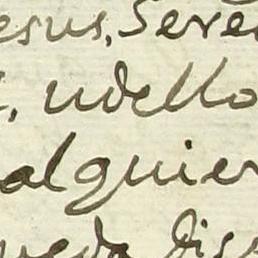 esus, Sere
, udello
alguier
ueda Dis